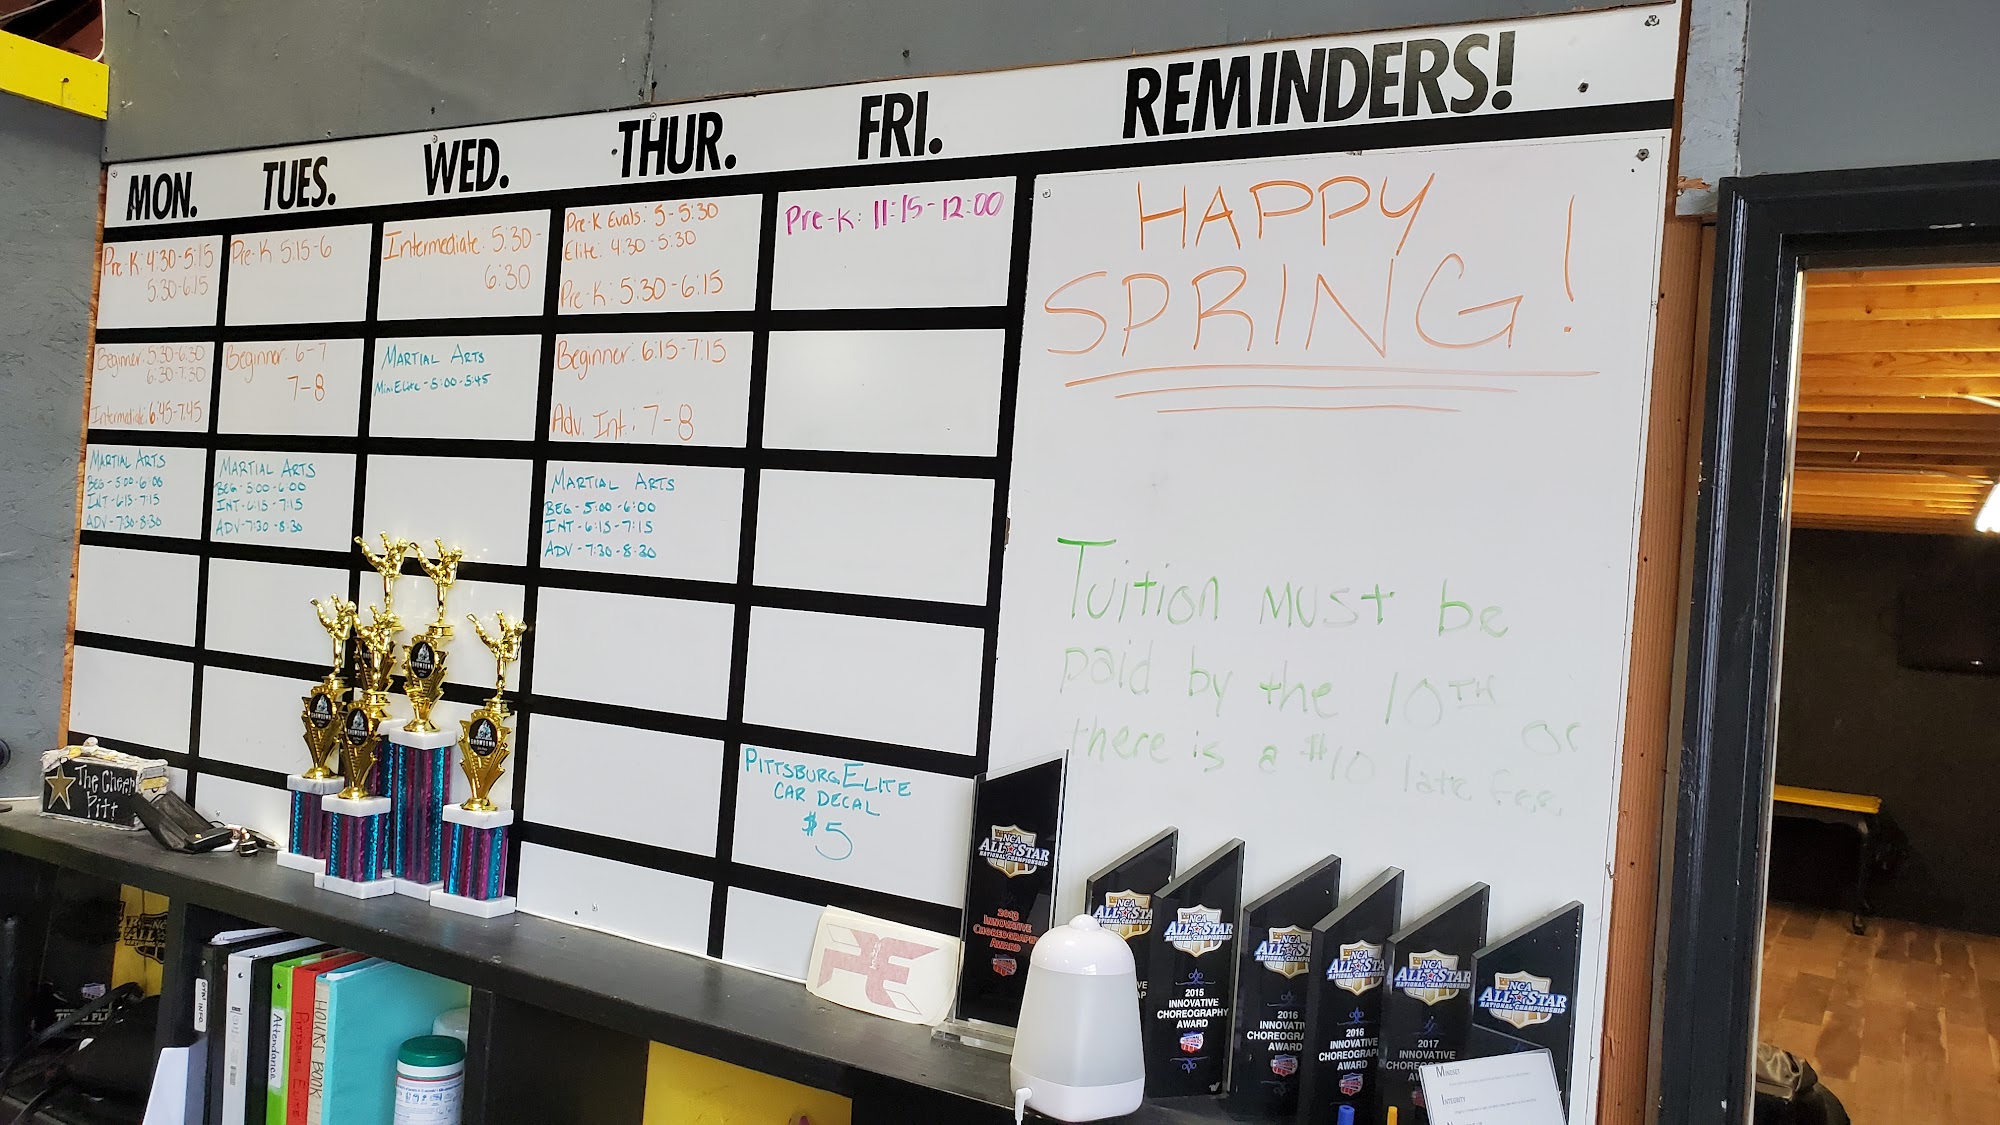 MON.
TUES.
WED.
THUR.
FRI.
REMINDERS!
Pre-K: 4:30-5:15
5:30-6:15
Pre-K 5:15-6
Intermediate: 5:30-
6:30
Pre-K Evals: 5-5:30
Elite: 4:30-5:30
Pre-K: 5:30-6:15
Pre-K: 11:15-12:00
Beginner: 5:30-6:30
6:30-7:30
Intermediate: 6:45-7:45
Beginner: 6-7
7-8
MARTIAL ARTS
Mini Elite - 5:00-5:45
Beginner: 6:15-7:15
Adv. Int.: 7-8
MARTIAL ARTS
BEG - 5:00-6:00
INT - 6:15-7:15
ADV - 7:30-8:30
MARTIAL ARTS
BEG - 5:00-6:00
INT - 6:15-7:15
ADV - 7:30-8:30
MARTIAL ARTS
BEG - 5:00-6:00
INT - 6:15-7:15
ADV - 7:30-8:30
PITTSBURG ELITE
CAR DECAL
$5
HAPPY
SPRING!
Tuition MUST be
paid by the 10TH or
there is a $10 late fee.
The Cheer
Pitt
SHOWDOWN
SHOWDOWN
SHOWDOWN
SHOWDOWN
Attendance
PITTSBURG ELITE
HOURS BOOK
PE
NCA
ALL STAR
NATIONAL CHAMPIONSHIP
2013
INNOVATIVE
CHOREOGRAPHY
AWARD
NCA
ALL STA
NATIONAL CHAMPIONSHIP
NCA
ALL STAR
NATIONAL CHAMPIONSHIP
2015
INNOVATIVE
CHOREOGRAPHY
AWARD
NCA
ALL STA
NATIONAL CHAMPIONS
2016
INNOVATIV
CHOREOGRAPH
AWARD
NCA
ALL STA
NATIONAL CHAMPIONS
2016
INNOVATIVE
CHOREOGRAPH
AWARD
NCA
ALL STAR
NATIONAL CHAMPIONSHIP
2017
INNOVATIVE
NCA
ALL STAR
NATIONAL CHAMPIONSHIP
MINDSET
INTEGRITY